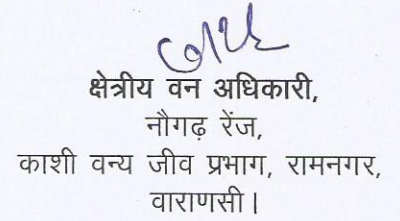 क्षेत्रीय वन अधिकारी,
नौगढ़ रेंज,
काशी वन्य जीव प्रभाग, रामनगर,
वाराणसी।